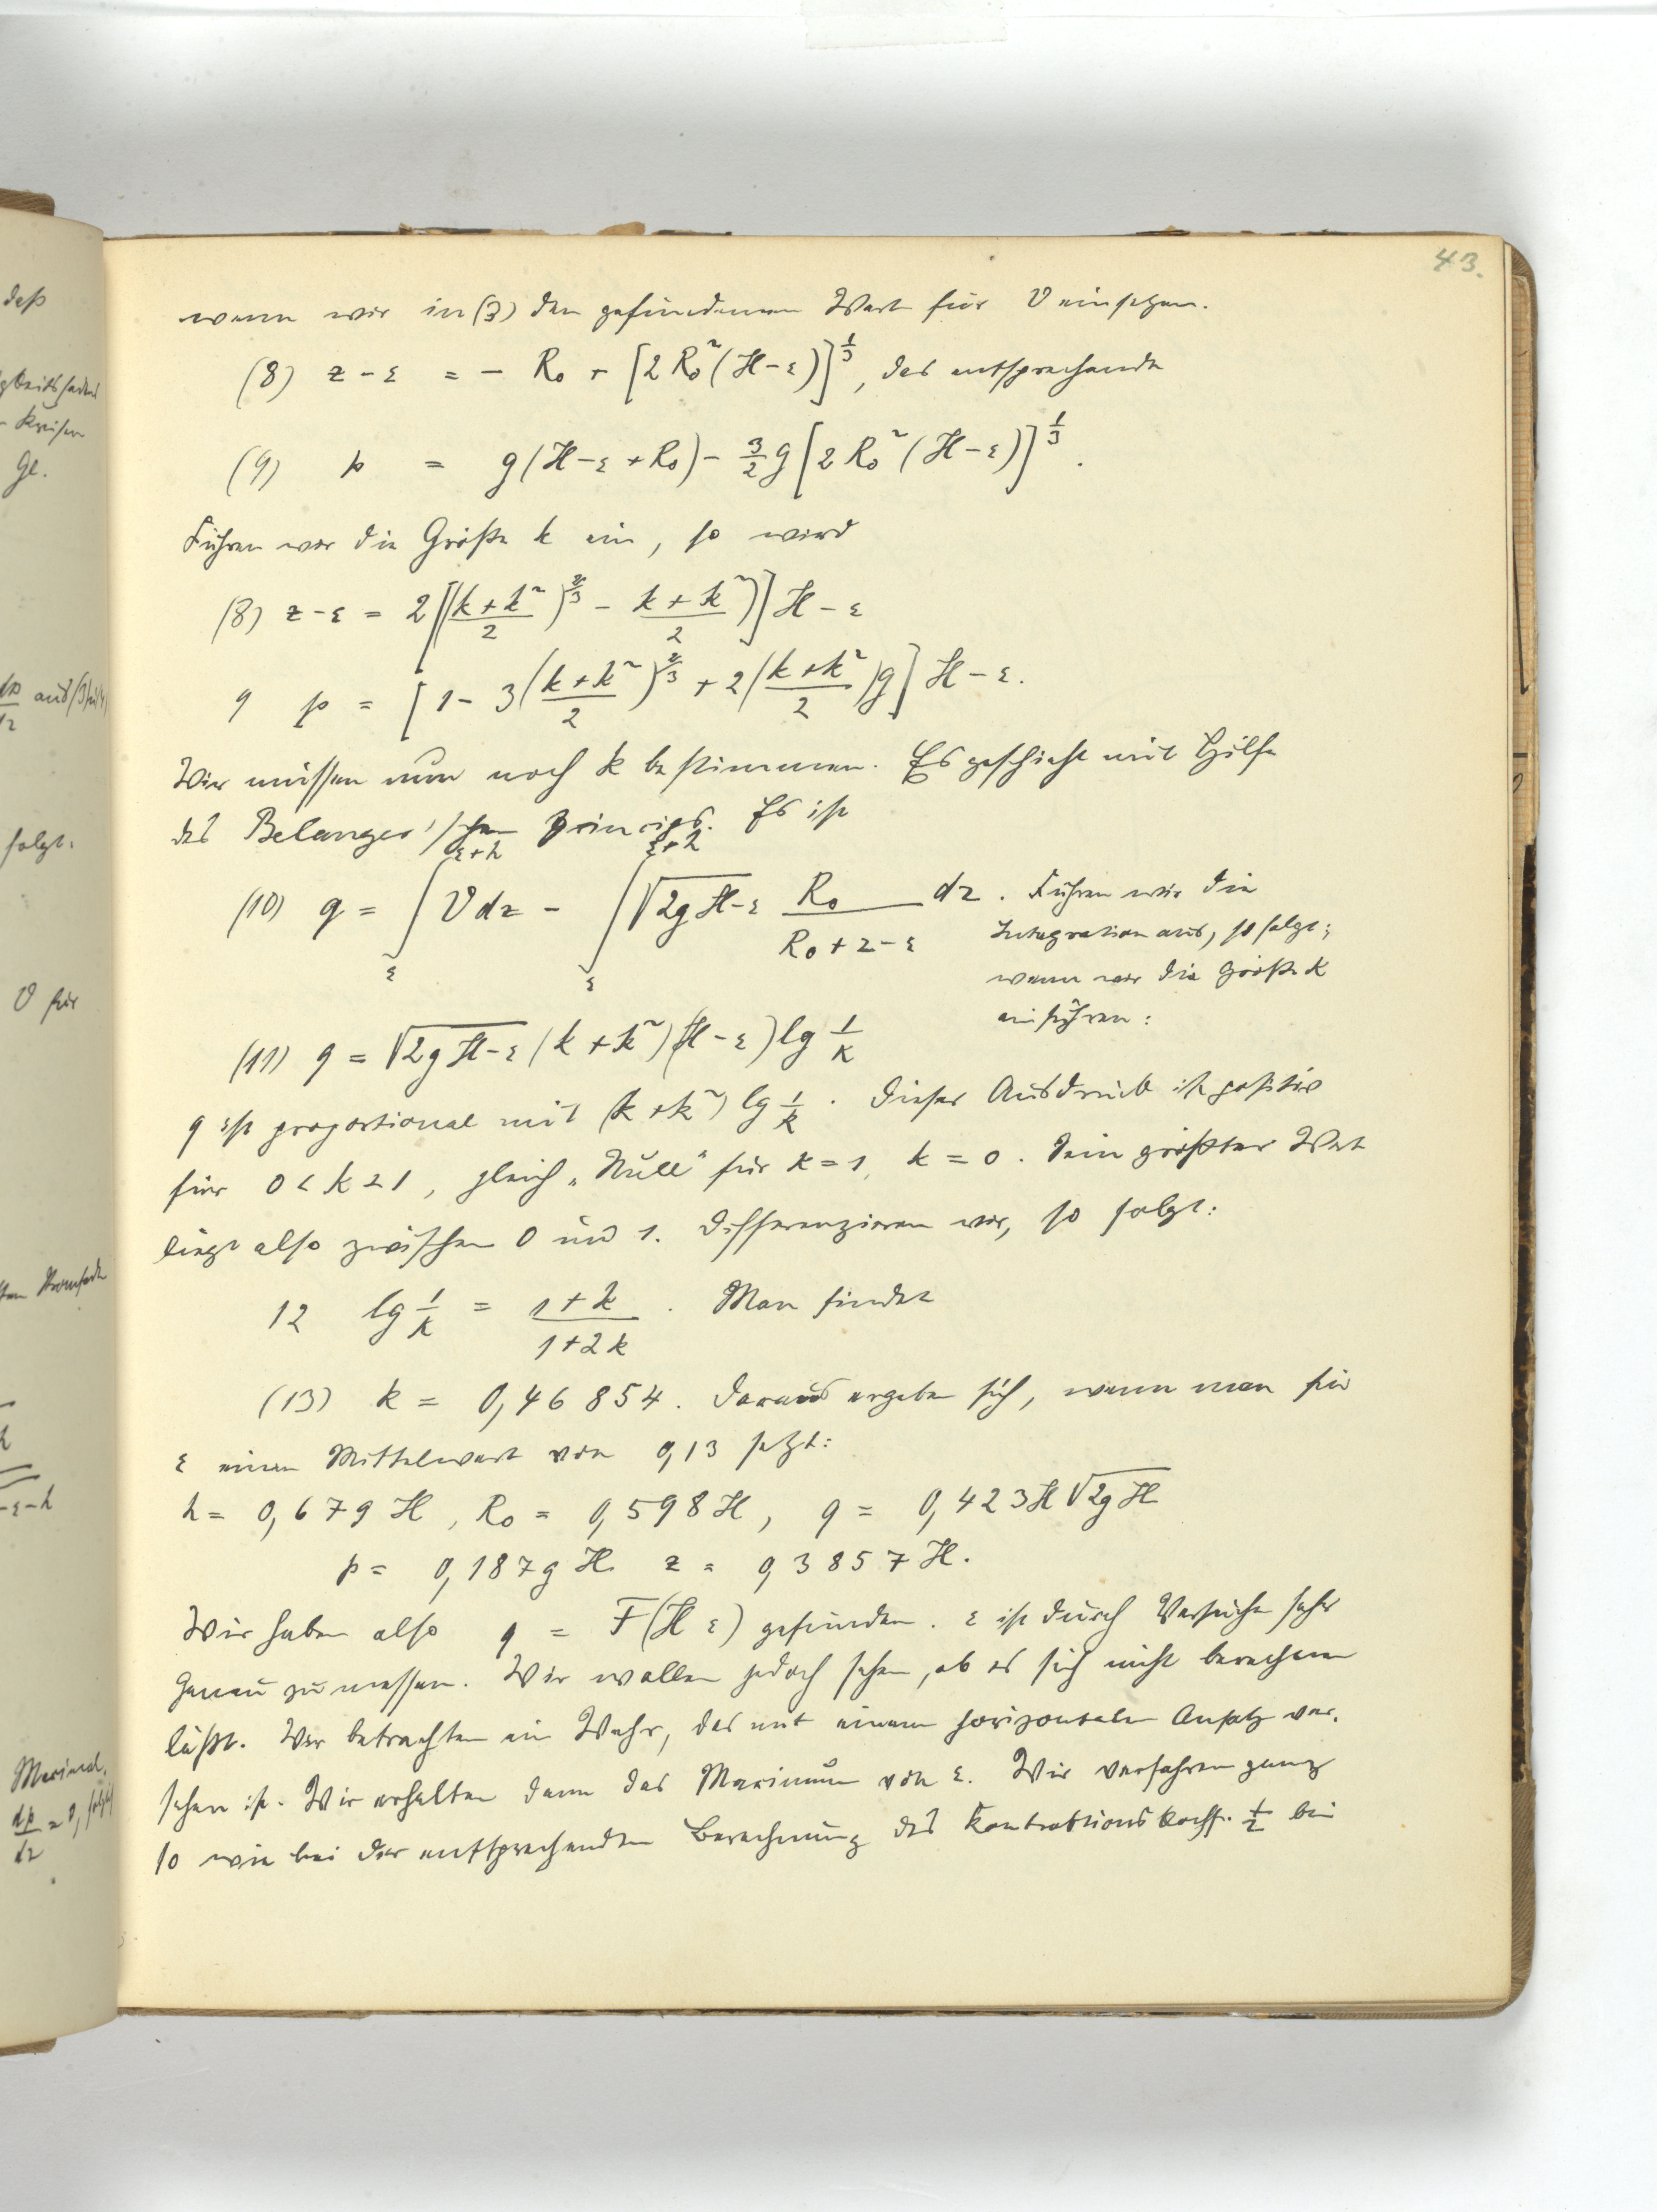 43.
wenn wir in (3) den gefundenen Wert für V einsetzen.
(8) z - ε = - R₀ + [2 R₀² (H - ε)]^⅓, das entsprechende
(9) p = g (H - ε + R₀) - 3/2 g [2 R₀² (H - ε)]^⅓.
Führen wir die Größe k ein, so wird
(8) z - ε = 2 [((k + k²)/2)^⅔ - (k + k²)/2)] H - ε
9 p = [1 - 3 ((k + k²)/2)^⅔ + 2 ((k + k²)/2) g] H - ε.
Wir müssen nun noch k bestimmen. Es geschieht mit Hilfe
des Belanger'schen Princips. Es ist
(10) q = ∫_ε^{ε+h} V dz - ∫_ε^{ε+h} √2g H-ε R₀/(R₀ + z - ε) dz. Führen wir die
Integration aus, so folgt;
wenn wir die Größe k
einführen:
(11) q = √2g H-ε (k + k²) (H - ε) lg 1/k
q ist proportional mit (k + k²) lg 1/k. Dieser Ausdruck ist positiv
für 0 < k < 1, gleich „Null“ für k = 1, k = 0. Sein größter Wert
liegt also zwischen 0 und 1. Differenzieren wir, so folgt:
12 lg 1/k = (1 + k)/(1 + 2k). Man findet
(13) k = 0,46854. Daraus ergeben sich, wenn man für
ε einen Mittelwert von 0,13 setzt:
h = 0,679 H, R₀ = 0,598 H, q = 0,423 H √2g H
p = 0,187 g H z = 0,3857 H.
Wir haben also q = F (H ε) gefunden. ε ist durch Versuche sehr
genau zu messen. Wir wollen jedoch sehen, ob es sich nicht berechnen
läßt. Wir betrachten ein Wehr, das mit einem horizontalen Ansatz ver-
sehen ist. Wir erhalten dann das Maximum von ε. Wir verfahren ganz
so wie bei der entsprechenden Berechnung des Kontraktionskoeff. ½ bei
daß
Kreisen
Gl.
aus (3) in (4)
folgt.
V für
- ε - h
Maximal.
dp/dz = 0, folgt